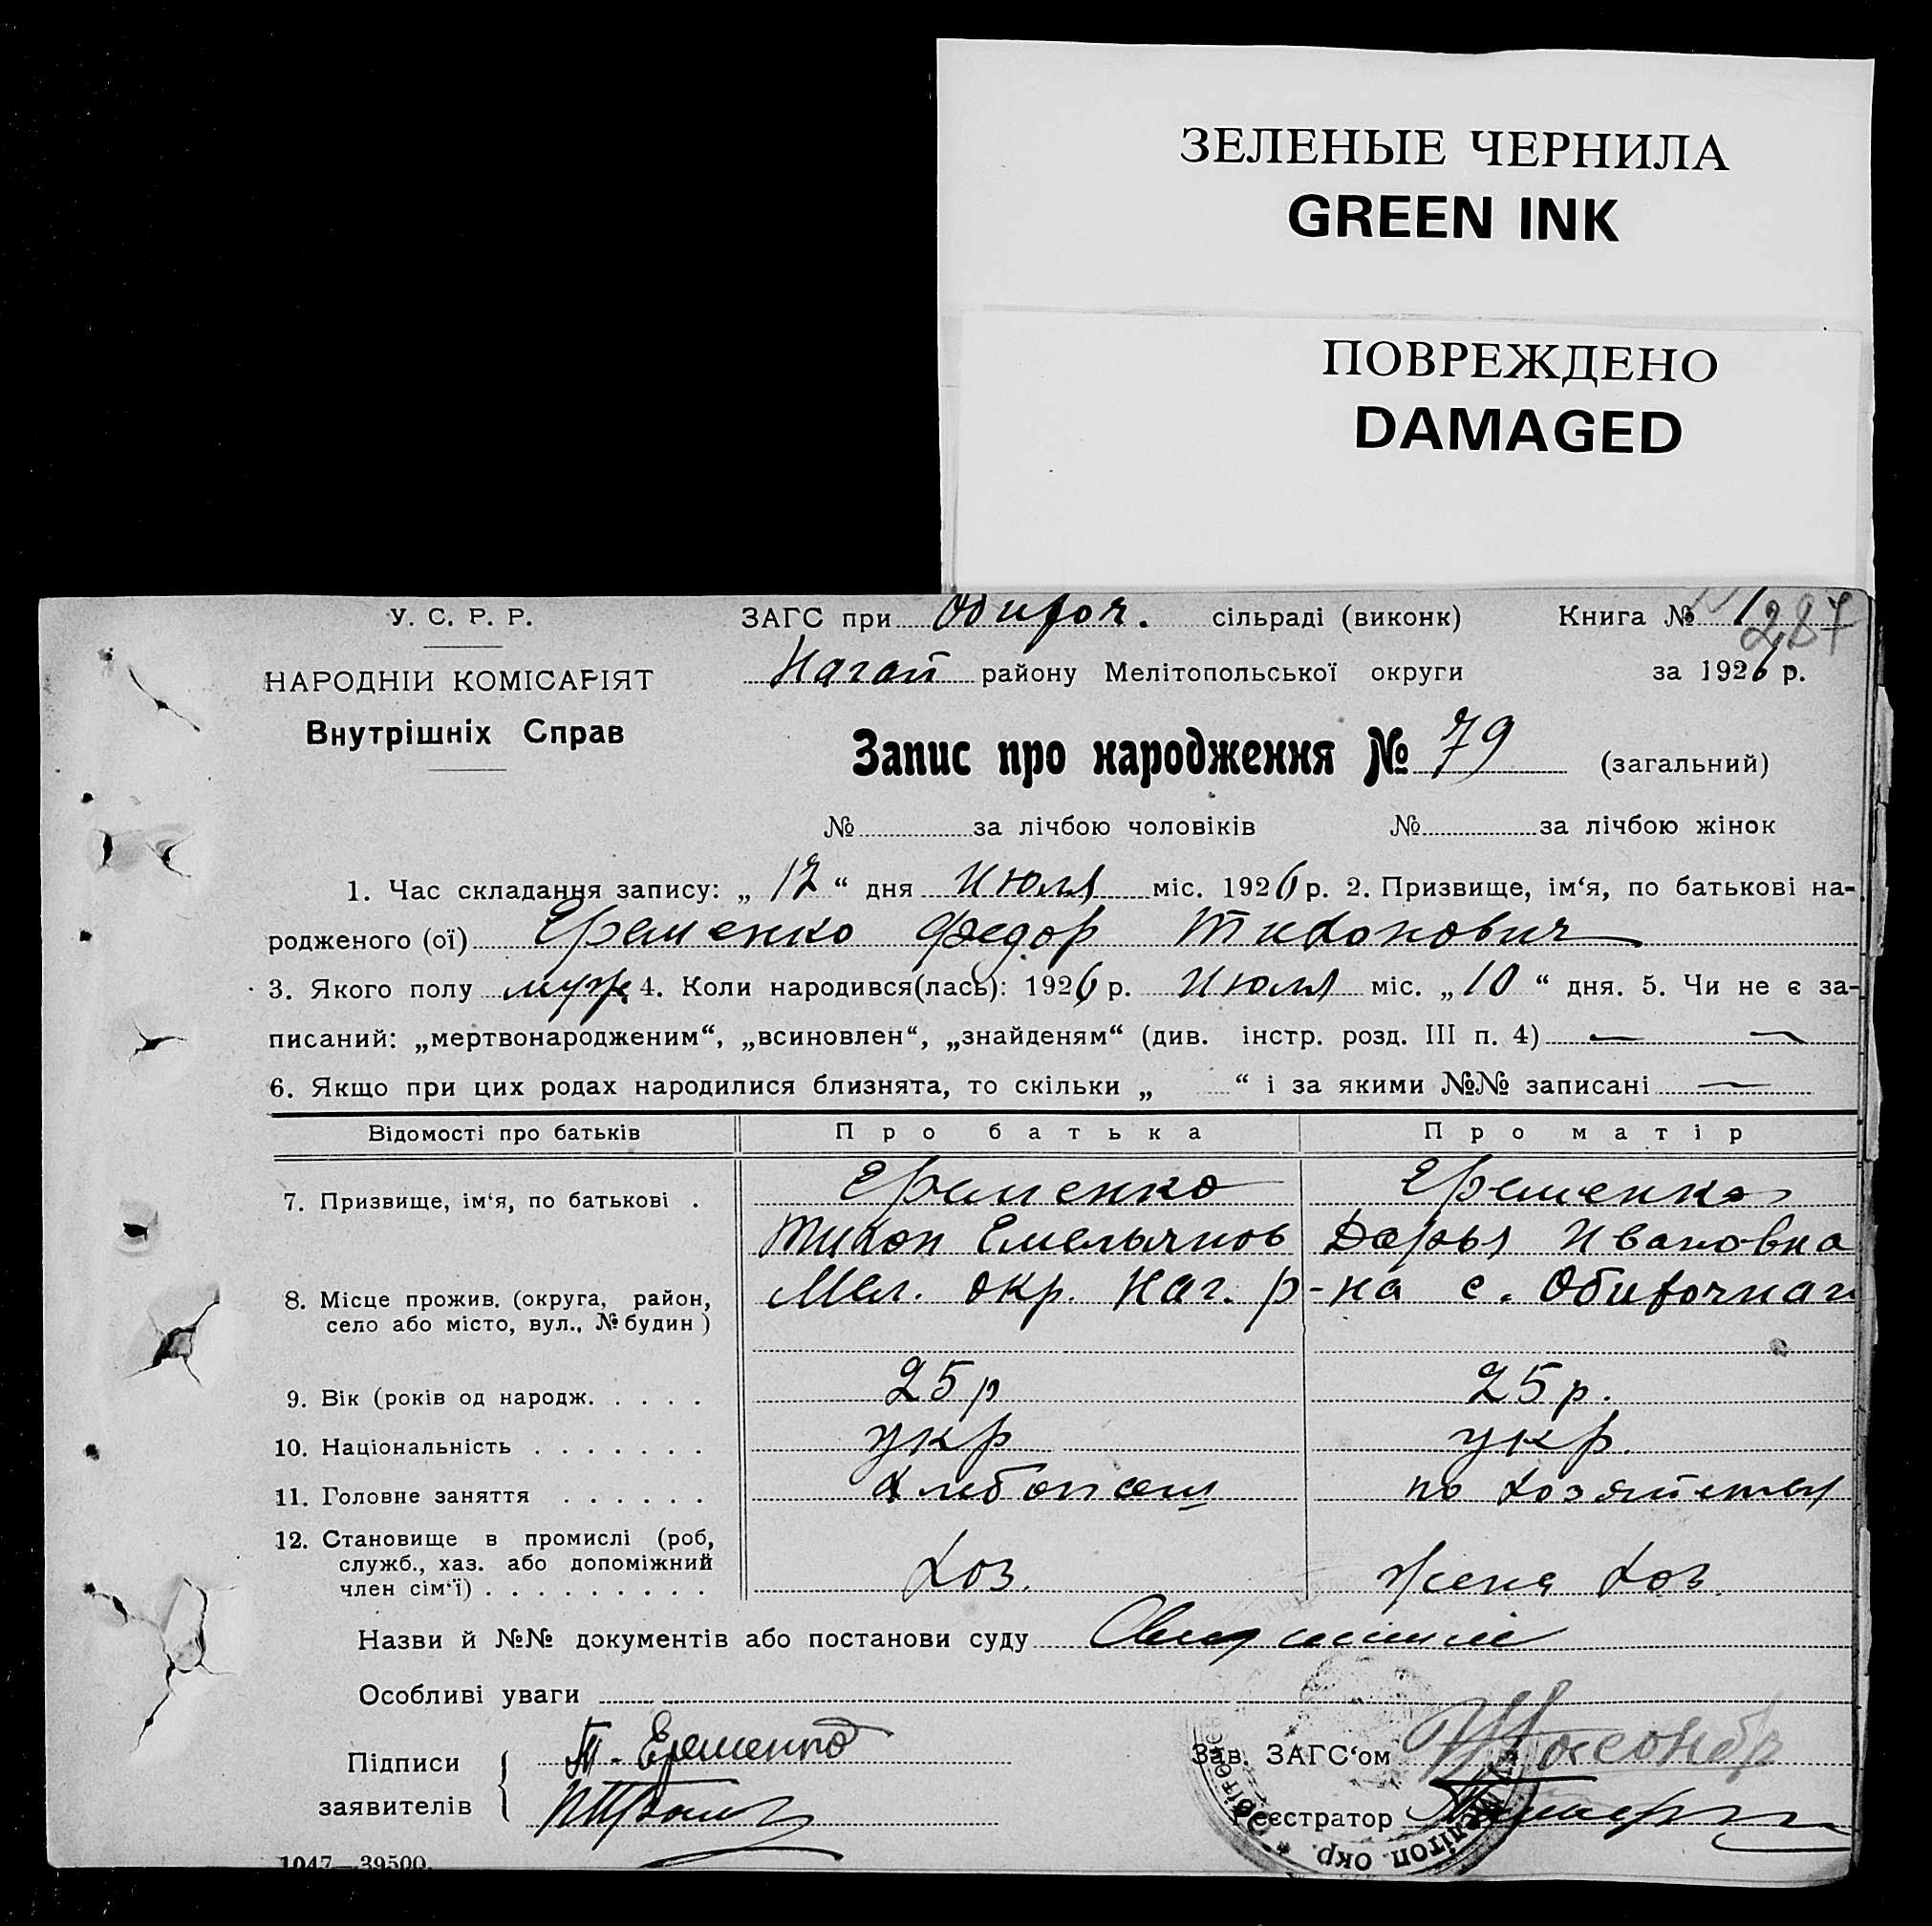 ЗЕЛЕНЫЕ ЧЕРНИЛА
GREEN INK
ПОВРЕЖДЕНО
DAMAGED
У. С. Р. Р.
НАРОДНІЙ КОМІСАРІЯТ
Внутрішніх Справ
ЗАГС при Обиточ. сільраді (виконк) Книга № 1 287
Нагай району Мелітопольської округи за 1926 р.
Запис про народження № 79 (загальний)
№ за лічбою чоловіків № за лічбою жінок
1. Час складання запису: „ 17 “ дня Июля міс. 1926 р. 2. Призвище, ім‘я, по батькові на-
родженого (ої) Еременко Федор Тихонович
3. Якого полу муж. 4. Коли народився(лась): 1926 р. Июля міс. „ 10 “ дня. 5. Чи не є за-
писаний: „мертвонародженим“, „всиновлен“, „знайденям“ (див. інстр. розд. III п. 4) — —
6. Якщо при цих родах народилися близнята, то скільки „ “ і за якими №№ записані —
Відомості про батьків Про батька Про матір
7. Призвище, ім‘я, по батькові . Еременко Еременко
Тихон Емельянов Дарья Ивановна
8. Місце прожив. (округа, район, село або місто, вул., № будин ) Мел. окр. Наг. р-на с. Обиточная
9. Вік (років од народж. . . . . 25 р 25 р.
10. Національність . . . . . . . укр укр.
11. Головне заняття . . . . . . хлебопаш по хозяйству
12. Становище в промислі (роб,
служб., хаз. або допоміжний
член сім‘ї) . . . . . . . . . Хоз. Жена хоз.
Назви й №№ документів або постанови суду
Особливі уваги
Підписи Т. Еременко
заявителів
Зав. ЗАГС‘ом
Реєстратор
Мелітоп. окр.
1047—39500.